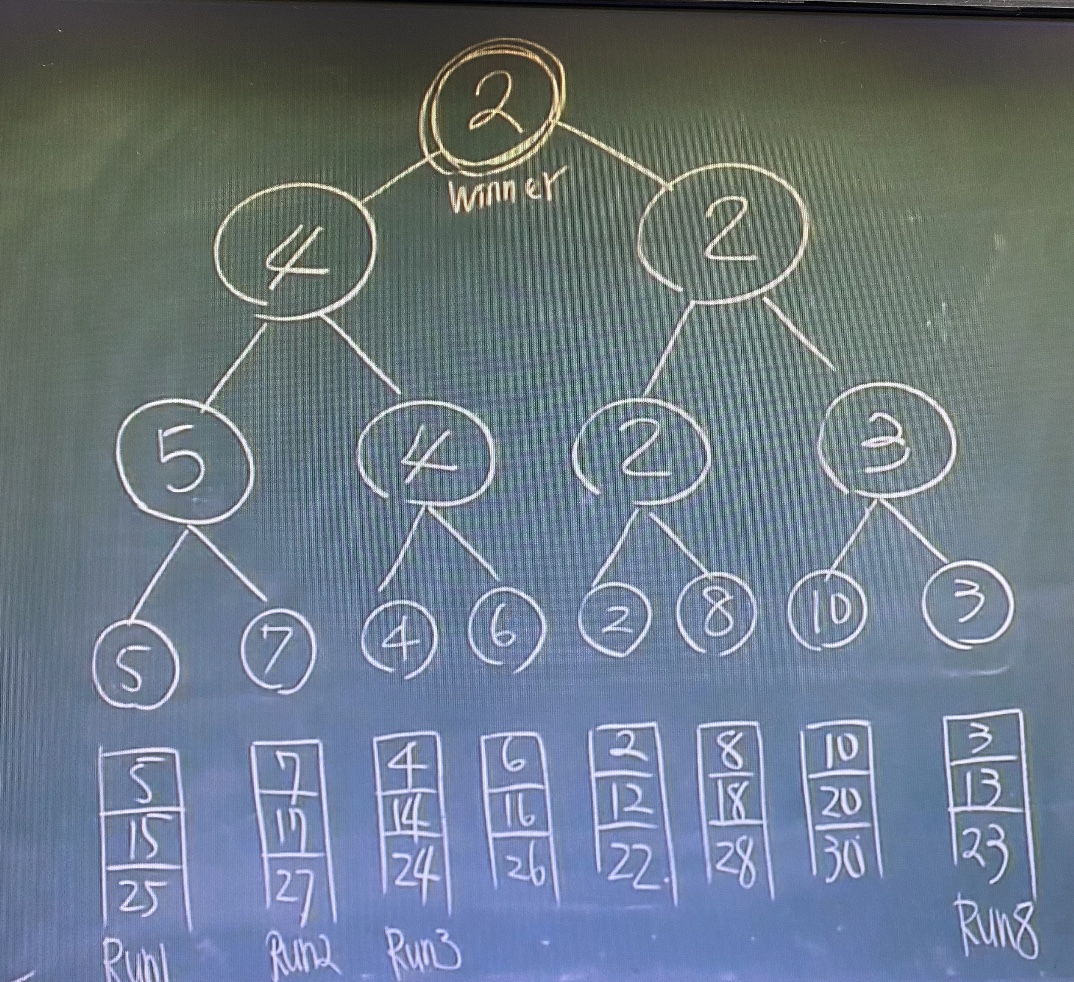 2
Winner
4 2
5 4 2 3
5 7 4 6 2 8 10 3
5 7 4 6 2 8 10 3
15 17 14 16 12 18 20 13
25 27 24 26 22 28 30 23
Run1 Run2 Run3 Run8